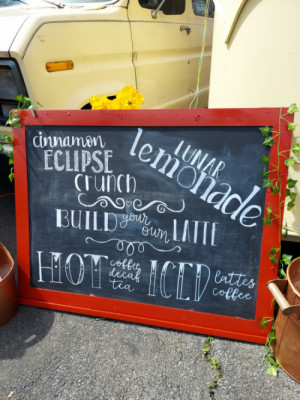 cinnamon
ECLIPSE
CRUNCH
LUNAR
lemonade
BUILD your own LATTE
HOT coffee decaf tea
ICED lattes coffee